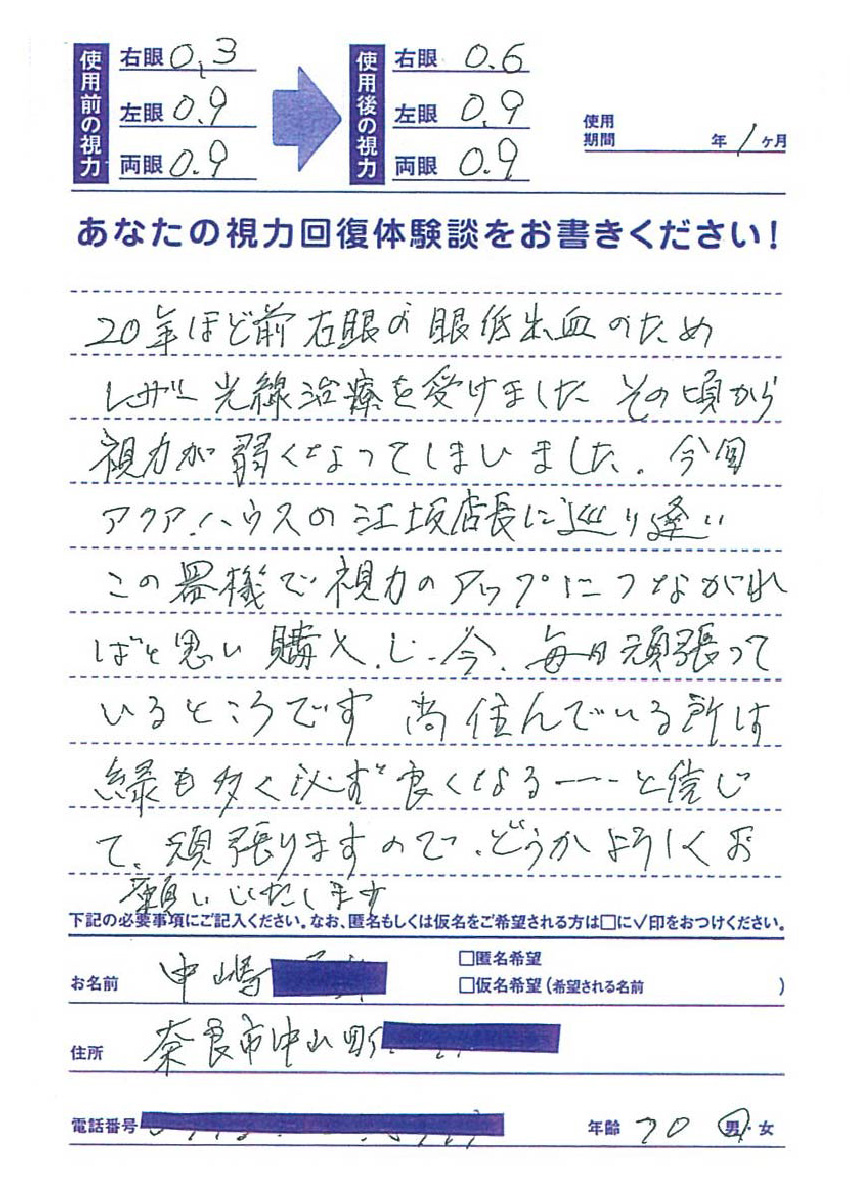 使用前の視力
右眼 0.3
左眼 0.9
両眼 0.9
使用後の視力
右眼 0.6
左眼 0.9
両眼 0.9
使用期間 年 1ヶ月
あなたの視力回復体験談をお書きください！
20年ほど前 右眼の眼低出血のため
レーザー光線治療を受けました その頃から
視力が弱くなってしまいました。今回
アクア.ハウスの江坂店長に巡り逢い
この器機で視力のアップにつながれ
ばと思い購入し.今、毎日頑張って
いるところです 尚住んでいる所は
緑も多く必ず良くなる――と信じ
て、頑張りますので、どうかよろしくお
願いいたします
下記の必要事項にご記入ください。なお、匿名もしくは仮名をご希望される方は□に✓印をおつけください。
お名前 中嶋
□匿名希望
□仮名希望（希望される名前 ）
住所 奈良市中山町
電話番号
年齢 70 男・女